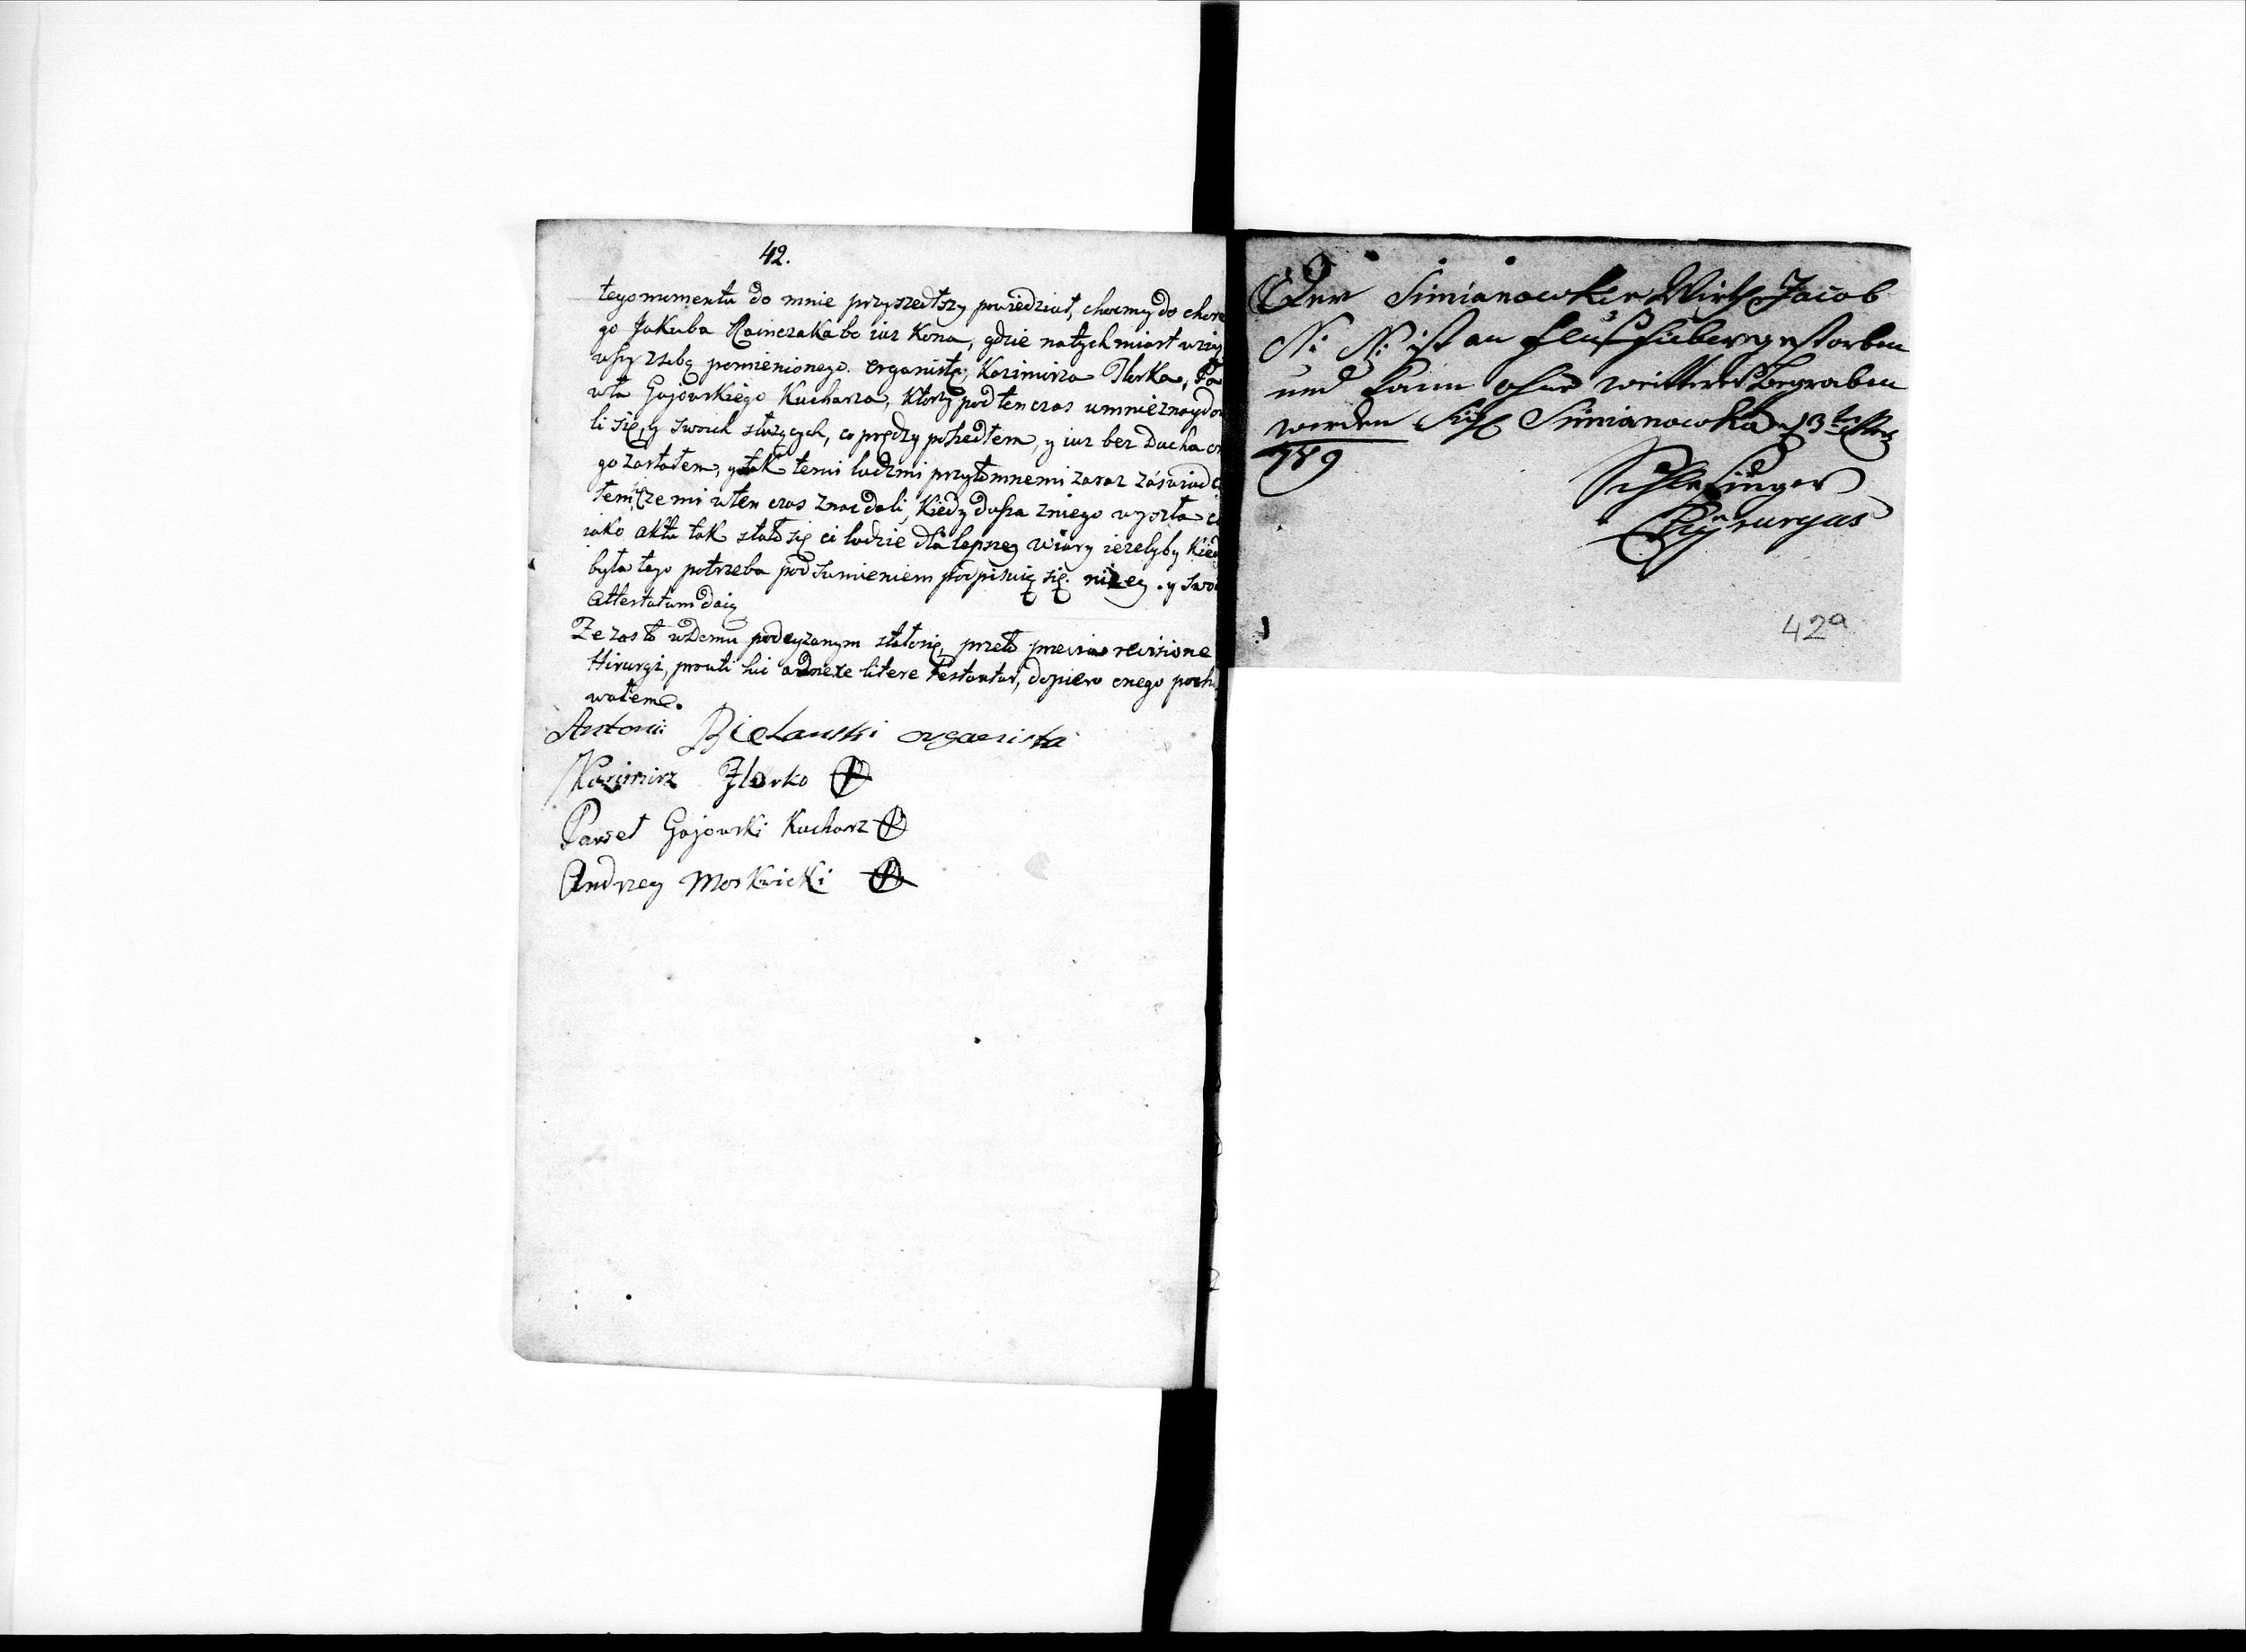 42.
tego momentu do mnie przyszedłszy powiedział, chocmy do chore
go Jakuba Rainczaka bo iuz kona, gdzie natychmiast wzią
wszy z sobą pomienionego organistę, Kazimirza Ilorka, Pa
wła Gajowskiego Kucharza, Ktorzy pod ten czas u mnie znaydowa
li się, y swoich słuzących, co prędzy poszedłem, y iuz bez Ducha on
go zastałem, y tak temi ludzmi przytomnemi zaraz záswiadc
łem się ze mi w ten czas znac dali, Kiedy dusza z niego wyszła c
iako aktu tak stało się ci ludzie dla lepszey wiary iezelyby Kied
była tego potrzeba pod sumieniem podpisuią się nizey . y swoie
attestatum daią
Ze zas to w Domu podeyzanym stało się, przeto previa revisione
Hirurgi, prouti huic adnexe litere testantur, dopiero onego pocho
wałem.
Antoni Bielanski organista
Kazimirz Ilorko
Paweł Gajowski Kucharz
Andrzey Moskwicki
Der Simianowker Wirth Jacob
N: N: ist an Flus fieber gestorben
und kann ohne weitteres Begraben
werden Simianowka 13t
789
Schlesinger
Chyrurgus
42a